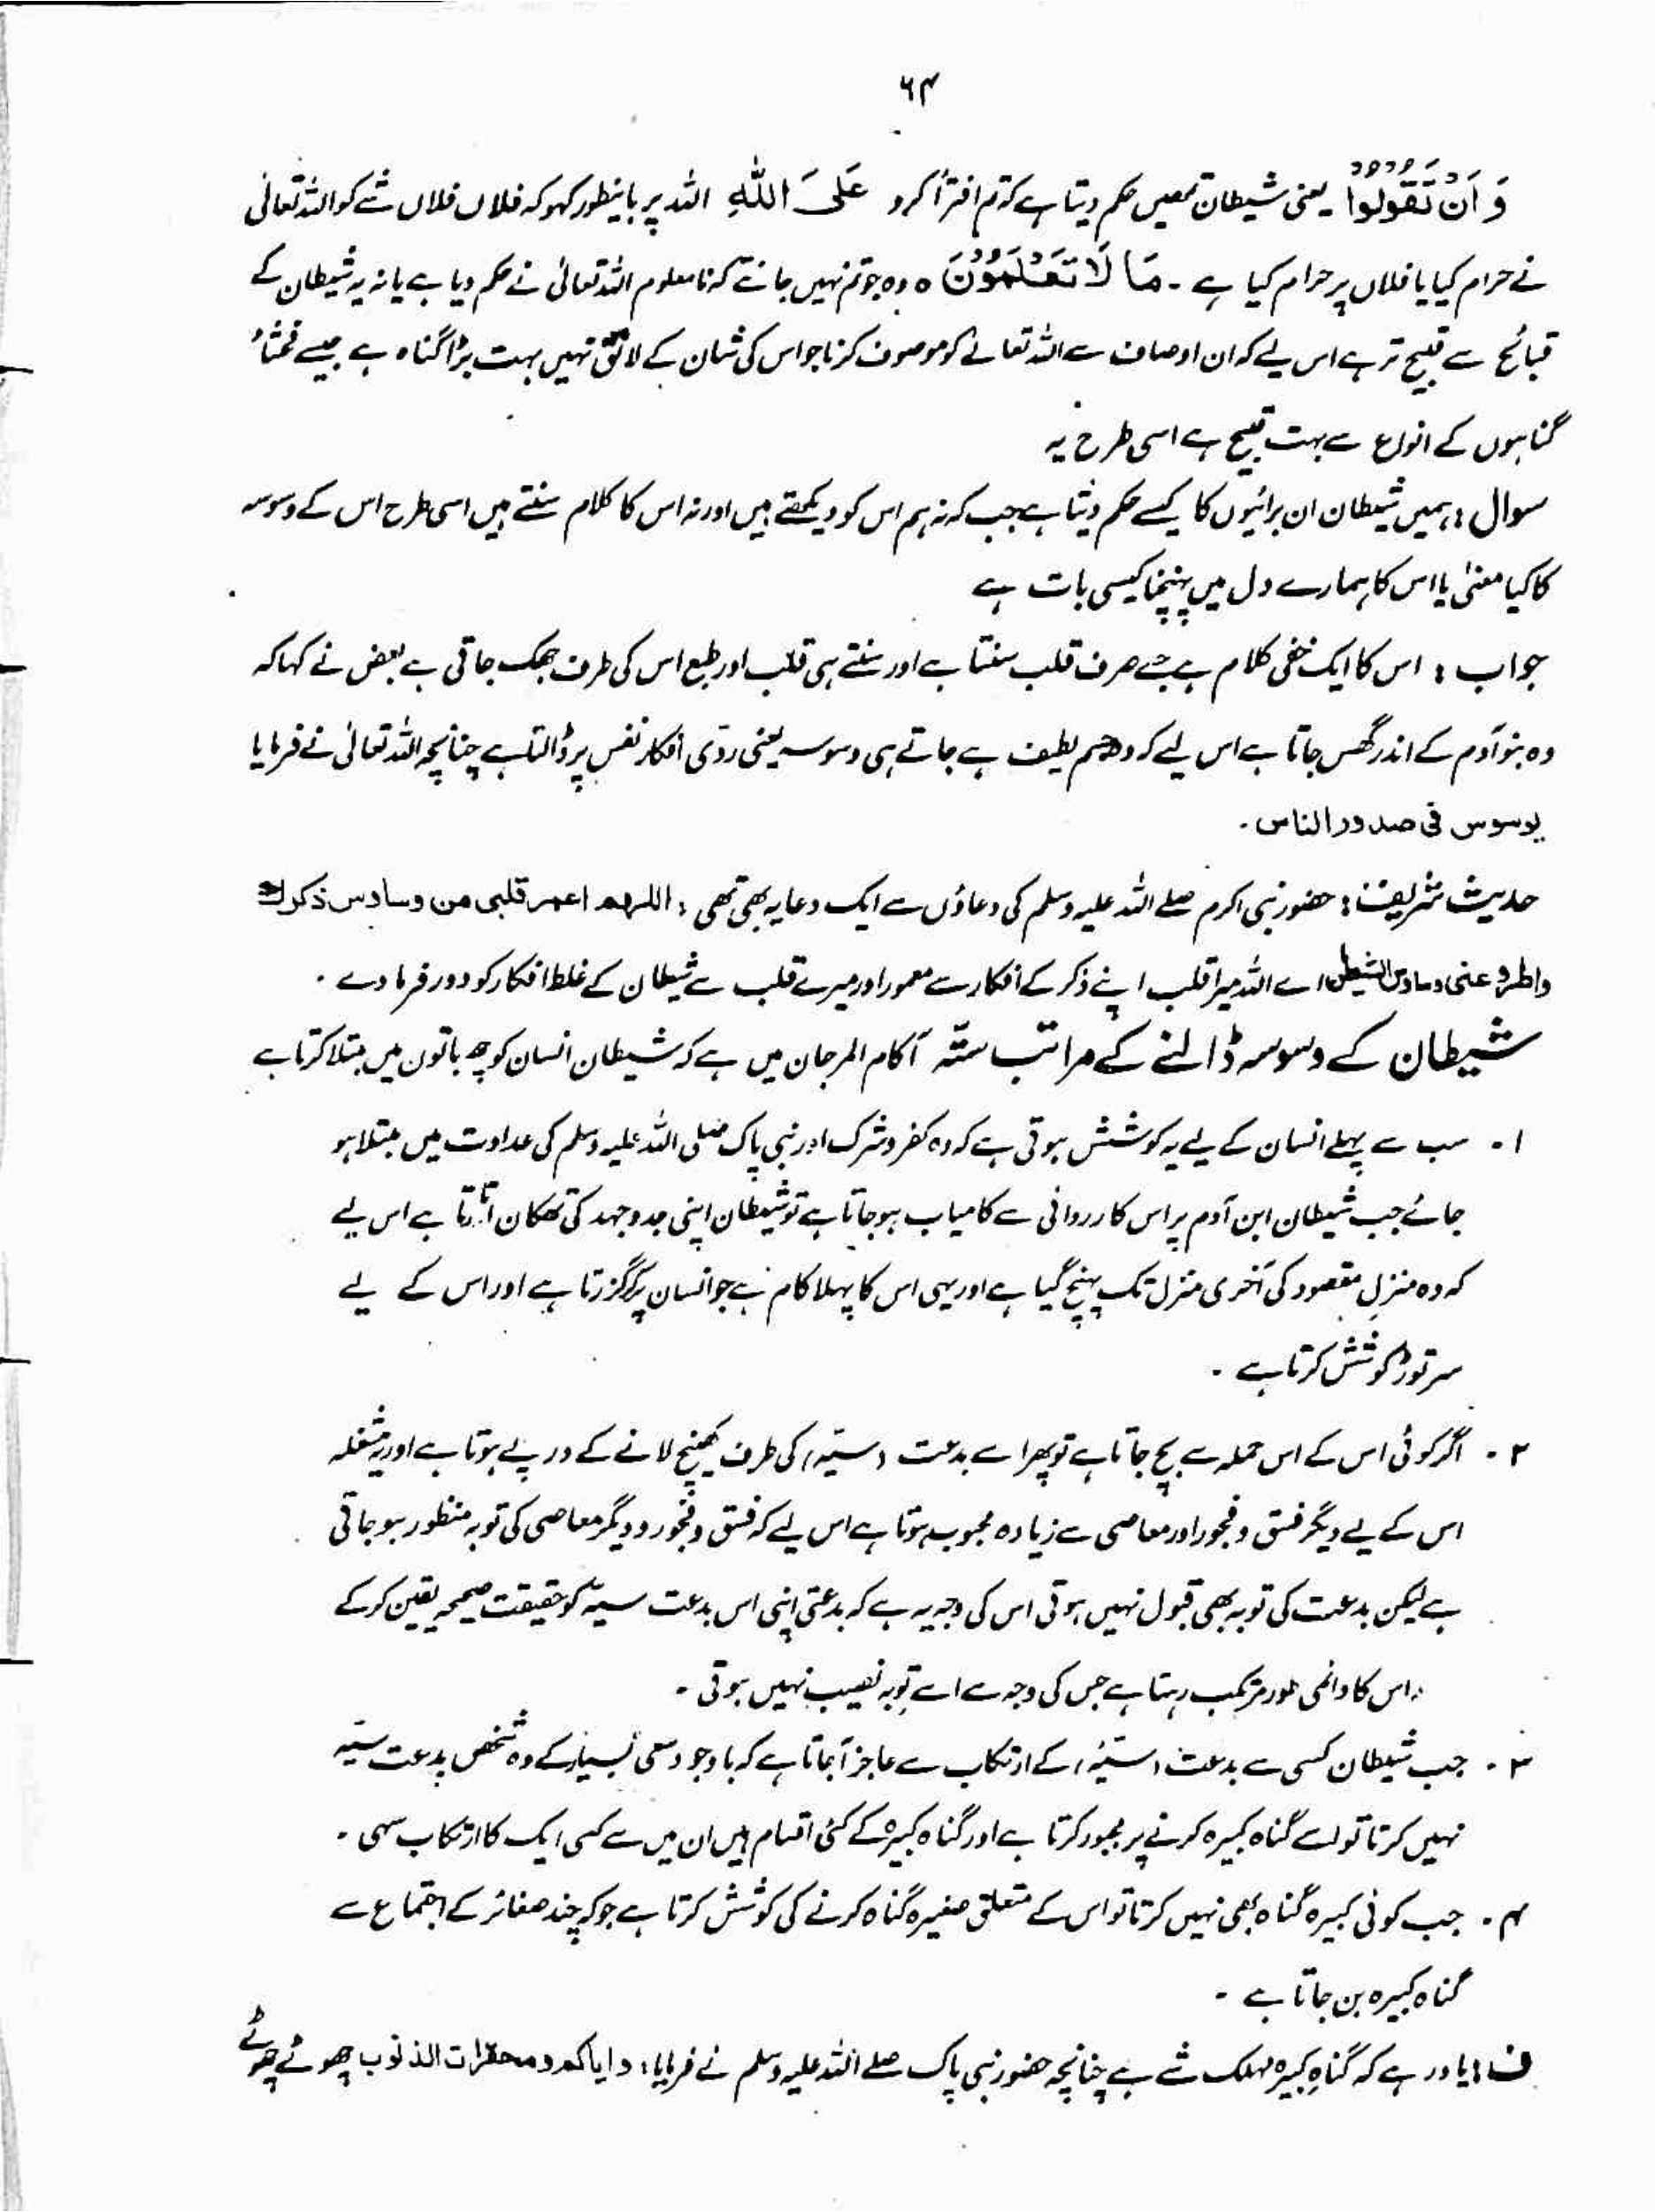 ۶۴
وَ اَنْ تَقُوْلُوْا یعنی شیطان تمھیں حکم دیتا ہے کہ تم افتراً کرو عَلَی اللّٰهِ اللہ پر باینطور کہو کہ فلاں فلاں شے کو اللہ تعالیٰ
نے حرام کیا یا فلاں پر حرام کیا ہے ۔ مَا لَا تَعْلَمُوْنَ ٥ وہ جو تم نہیں جانتے کہ نامعلوم اللہ تعالیٰ نے حکم دیا ہے یا نہ یہ شیطان کے
قبائح سے قبیح تر ہے اس لیے کہ ان اوصاف سے اللہ تعالےٰ کو موصوف کرنا جو اس کی شان کے لائق نہیں بہت بڑا گناہ ہے جیسے فحشاً
گناہوں کے انواع سے بہت قبیح ہے اسی طرح یہ
سوال : ہمیں شیطان ان برائیوں کا کیسے حکم دیتا ہے جب کہ نہ ہم اس کو دیکھتے ہیں اور نہ اس کا کلام سنتے ہیں اسی طرح اس کے وسوسہ
کا کیا معنیٰ یا اس کا ہمارے دل میں پہنچنا کیسی بات ہے
جواب : اس کا ایک خفی کلام ہے جسے صرف قلب سنتا ہے اور سنتے ہی قلب اور طبع اس کی طرف جھک جاتی ہے بعض نے کہا کہ
وہ بنو آدم کے اندر گھس جاتا ہے اس لیے کہ وہ جسم لطیف ہے جاتے ہی وسوسہ یعنی ردّی افکار نفس پر ڈالتا ہے چنانچہ اللہ تعالیٰ نے فرمایا
یوسوس فی صدور الناس ۔
حدیث شریف : حضور نبی اکرم صلے اللہ علیہ وسلم کی دعاؤں سے ایک دعا یہ بھی تھی : اللہم اعمر قلبی من وساوس ذکرک
واطرد عنی وساوس الشیطن اے اللہ میرا قلب اپنے ذکر کے افکار سے معمور اور میرے قلب سے شیطان کے غلط افکار کو دور فرما دے ۔
شیطان کے وسوسہ ڈالنے کے مراتب ستّہ آکام المرجان میں ہے کہ شیطان انسان کو چھ باتوں میں مبتلا کرتا ہے
۱ ۔ سب سے پہلے انسان کے لیے یہ کوشش ہوتی ہے کہ وہ کفر و شرک اور نبی پاک صلی اللہ علیہ وسلم کی عداوت میں مبتلا ہو
جائے جب شیطان ابن آدم پر اس کارروائی سے کامیاب ہو جاتا ہے تو شیطان اپنی جدوجہد کی تھکان اتارتا ہے اس لیے
کہ وہ منزلِ مقصود کی آخری منزل تک پہنچ گیا ہے اور یہی اس کا پہلا کام ہے جو انسان پر کر گزرتا ہے اور اس کے لیے
سر توڑ کوشش کرتا ہے ۔
۲ ۔ اگر کوئی اس کے اس حملہ سے بچ جاتا ہے تو پھر اسے بدعت (سیّہ) کی طرف کھینچ لانے کے در پے ہوتا ہے اور یہ مشغلہ
اس کے لیے دیگر فسق و فجور اور معاصی سے زیادہ محبوب ہوتا ہے اس لیے کہ فسق و فجور و دیگر معاصی کی توبہ منظور ہو جاتی
ہے لیکن بدعت کی توبہ بھی قبول نہیں ہوتی اس کی وجہ یہ ہے کہ بدعتی اپنی اس بدعت سیّہ کو حقیقت صحیحہ یقین کر کے
اس کا دائمی طور مرتکب رہتا ہے جس کی وجہ سے اسے توبہ نصیب نہیں ہوتی ۔
۳ ۔ جب شیطان کسی سے بدعت (سیّئہ) کے ارتکاب سے عاجز آ جاتا ہے کہ باوجود سعی بسیار کے وہ شخص بدعت سیّہ
نہیں کرتا تو اسے گناہ کبیرہ کرنے پر مجبور کرتا ہے اور گناہ کبیرہ کے کئی اقسام ہیں ان میں سے کسی ایک کا ارتکاب سہی ۔
۴ ۔ جب کوئی کبیرہ گناہ بھی نہیں کرتا تو اس کے متعلق صغیرہ گناہ کرنے کی کوشش کرتا ہے جو کہ چند صغائر کے اجتماع سے
گناہ کبیرہ بن جاتا ہے ۔
ف : یاد رہے کہ گناہِ کبیرہ مہلک شے ہے چنانچہ حضور نبی پاک صلے اللہ علیہ وسلم نے فرمایا : و ایاکم و محقرات الذنوب چھوٹے چھوٹے